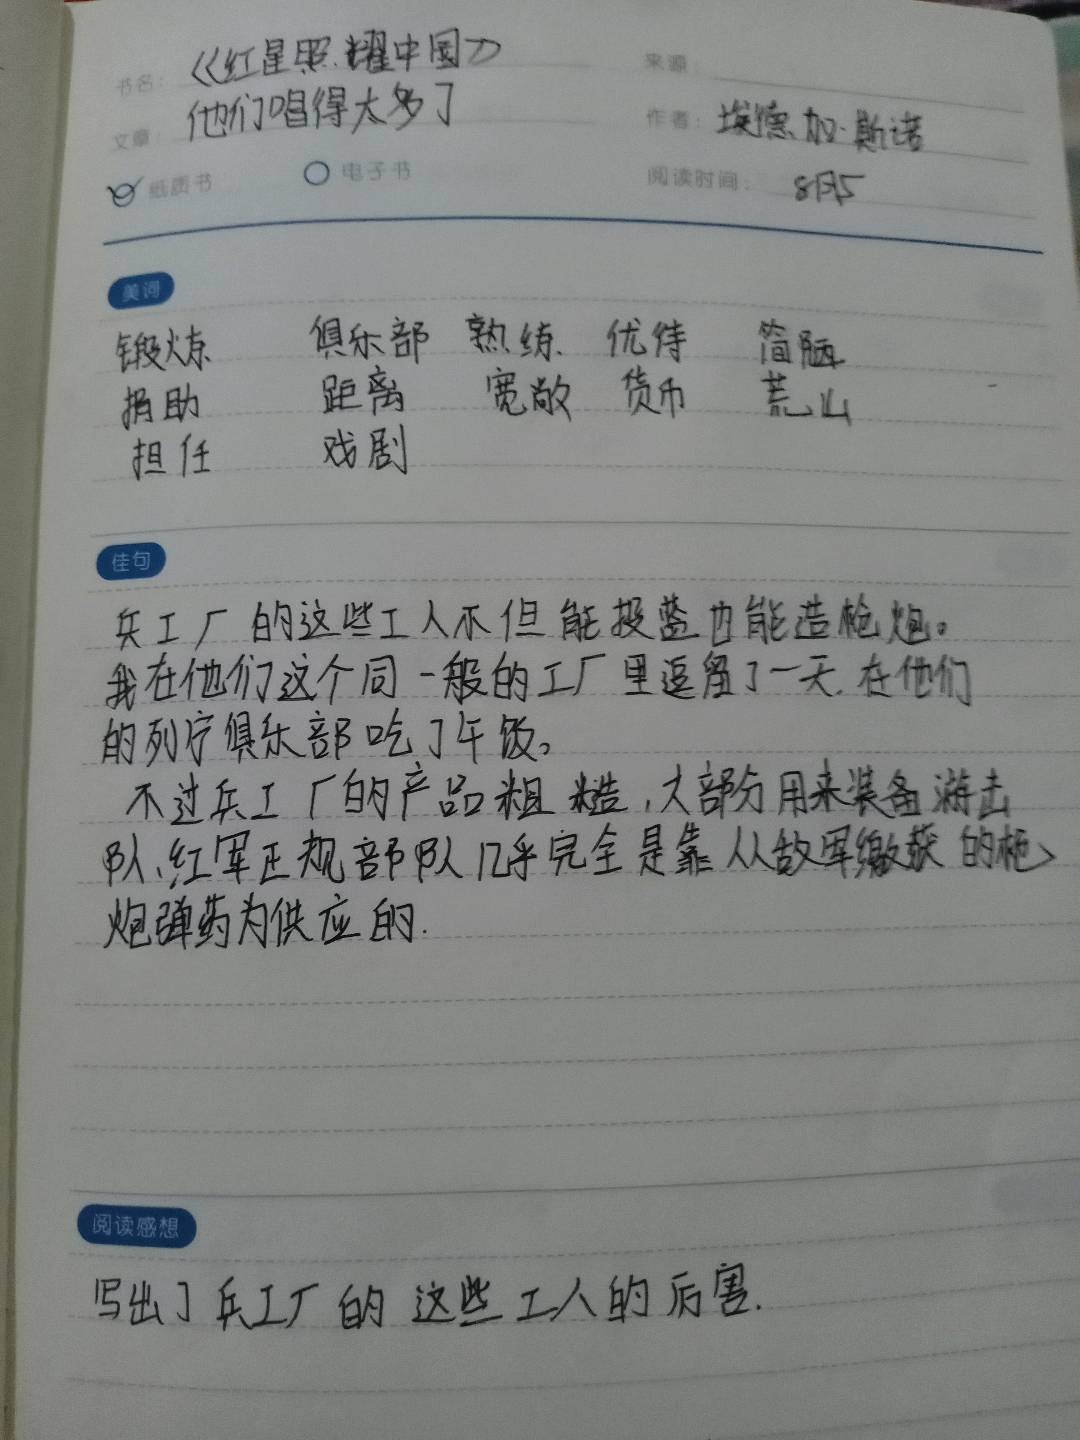 书名： 《红星照耀中国》 来源：
文章： 他们唱得太多了 作者： 埃德加·斯诺
纸质书 电子书 阅读时间： 8月5
美词
锻炼 俱乐部 熟练 优待 简陋
捐助 距离 宽敞 货币 荒山
担任 戏剧
佳句
兵工厂的这些工人不但能投蓝也能造枪炮。
我在他们这个同一般的工厂里逗留了一天.在他们
的列宁俱乐部吃了午饭。
不过兵工厂的产品粗糙,大部分用来装备游击
队,红军正规部队几乎完全是靠从敌军缴获的枪、
炮弹药为供应的.
阅读感想
写出了兵工厂的这些工人的厉害.